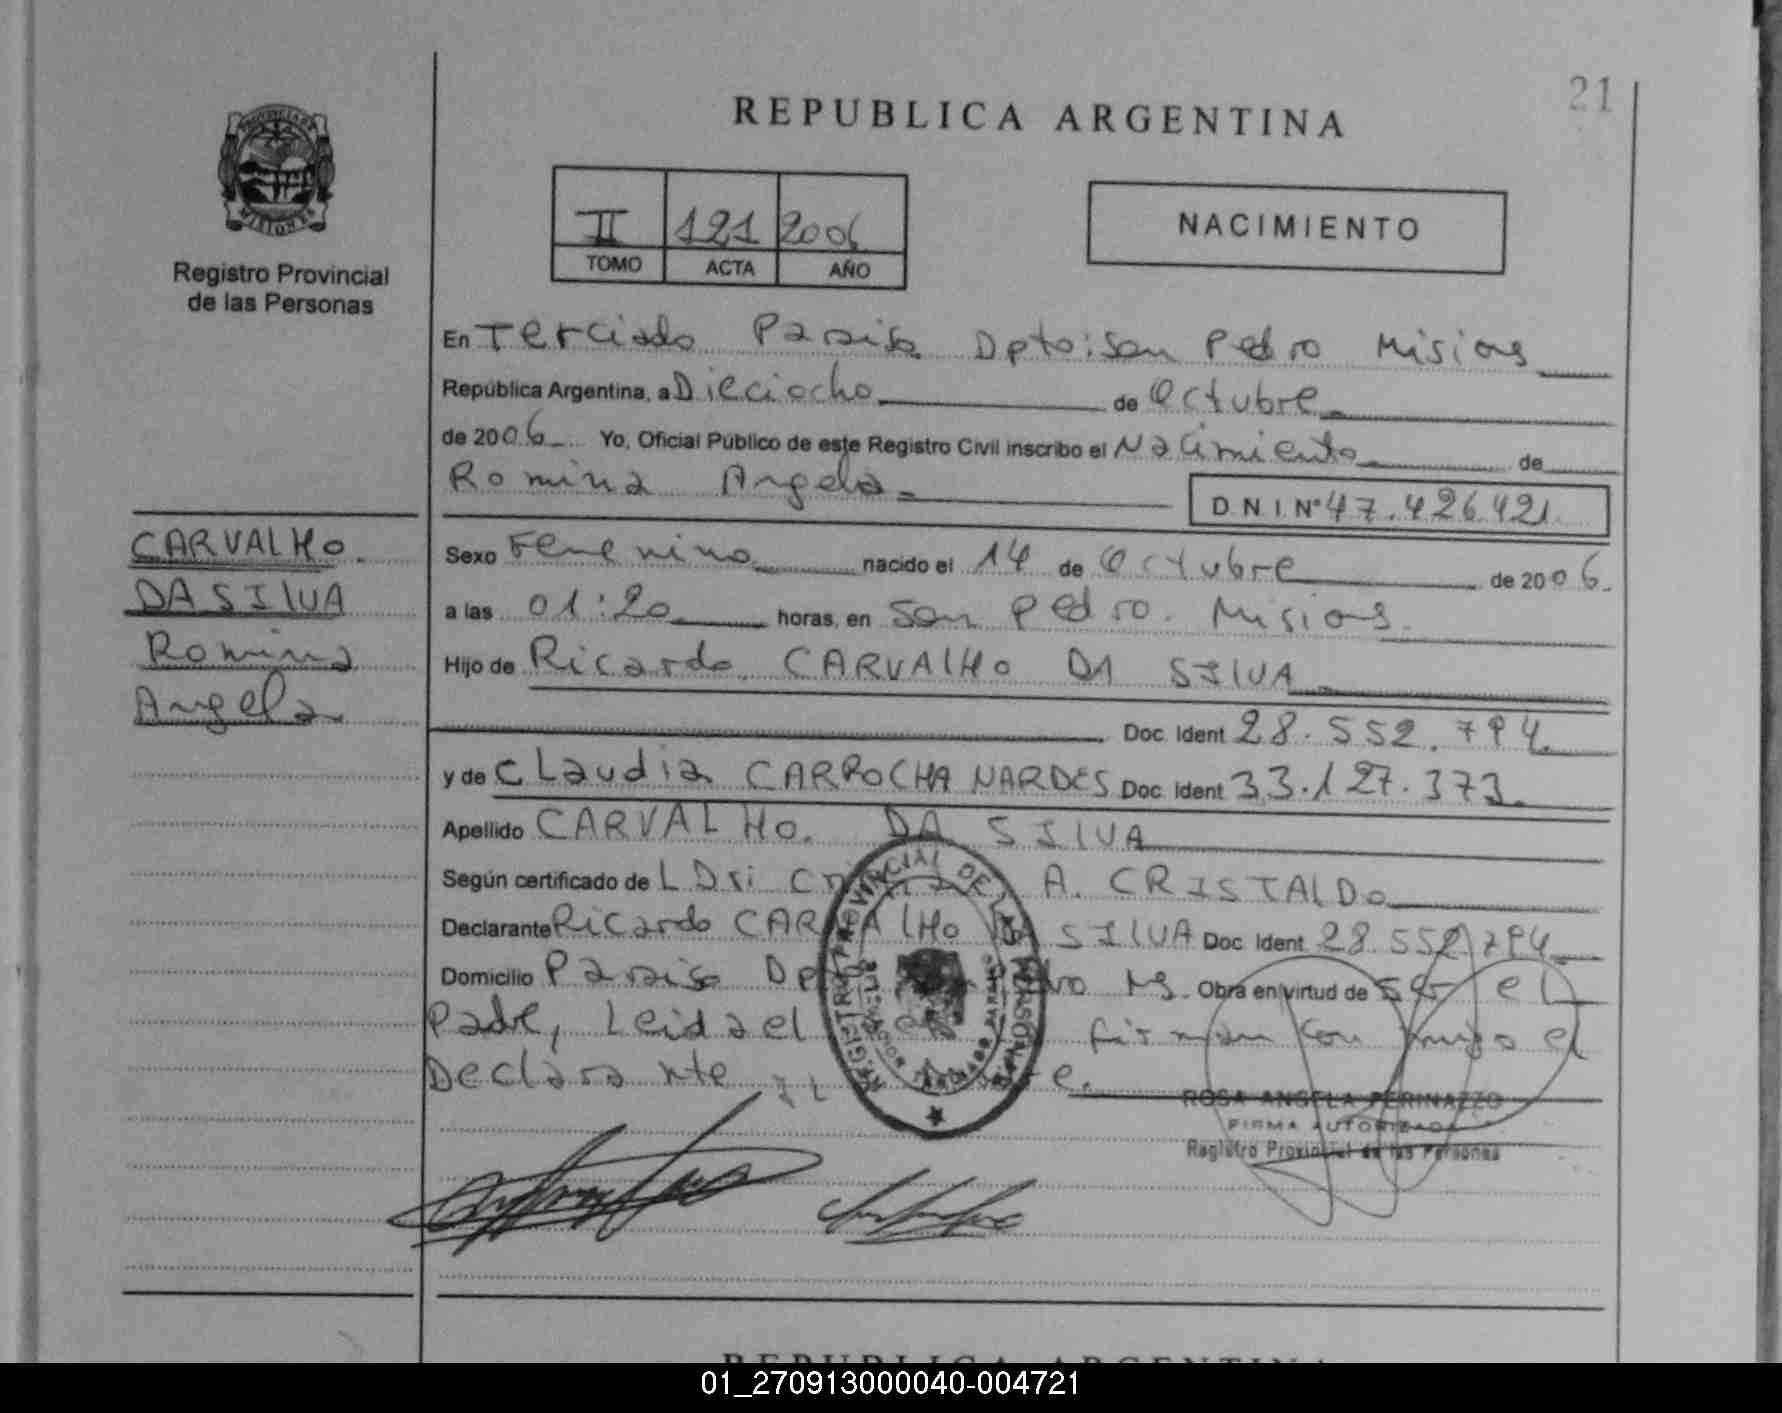 21
REPUBLICA ARGENTINA
PROVINCIA DE
MISIONES
Registro Provincial
de las Personas
II 121 2006
TOMO ACTA AÑO
NACIMIENTO
En Terciado Paraiso Dpto: San Pedro Misiones
República Argentina, a Dieciocho de Octubre
de 2006 Yo, Oficial Público de este Registro Civil inscribo el Nacimiento de
Romina Angela
D.N.I. Nº 47.426.421
CARVALHO
DA SILVA
Romina
Angela
Sexo Femenino nacido el 14 de Octubre de 2006.
a las 01:20 horas, en San Pedro. Misiones.
Hijo de Ricardo CARVALHO DA SILVA
Doc. Ident 28.552.794
y de Claudia CARROCHA NARDES Doc. Ident 33.127.373.
Apellido CARVALHO. DA SILVA
Según certificado de A. CRISTALDO
Declarante Ricardo CARVALHO DA SILVA Doc. Ident. 28.552.794
Domicilio Paraiso Ms. Obra en virtud de ser el
Padre, Leida el firman conmigo el
Declarante
REGISTRO PROVINCIAL DE LAS PERSONAS
ROSA ANGELA PERINAZZO
FIRMA AUTORIZADA
Registro Provincial de las Personas
REPUBLICA ARGENTINA
01_270913000040-004721